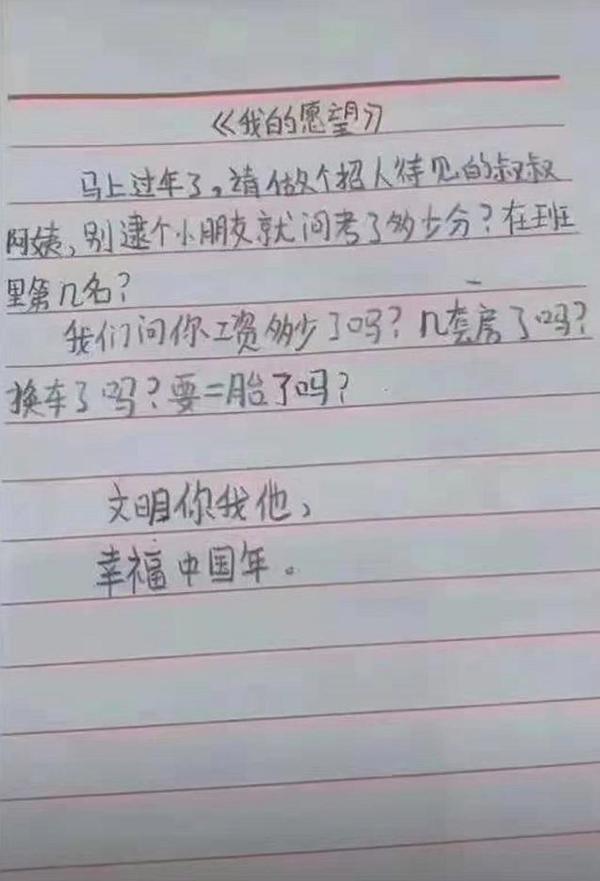 《我的愿望》
马上过年了,请做个招人待见的叔叔
阿姨,别逮个小朋友就问考了多少分?在班
里第几名?
我们问你工资多少了吗?几套房了吗?
换车了吗?要二胎了吗?
文明你我他,
幸福中国年。